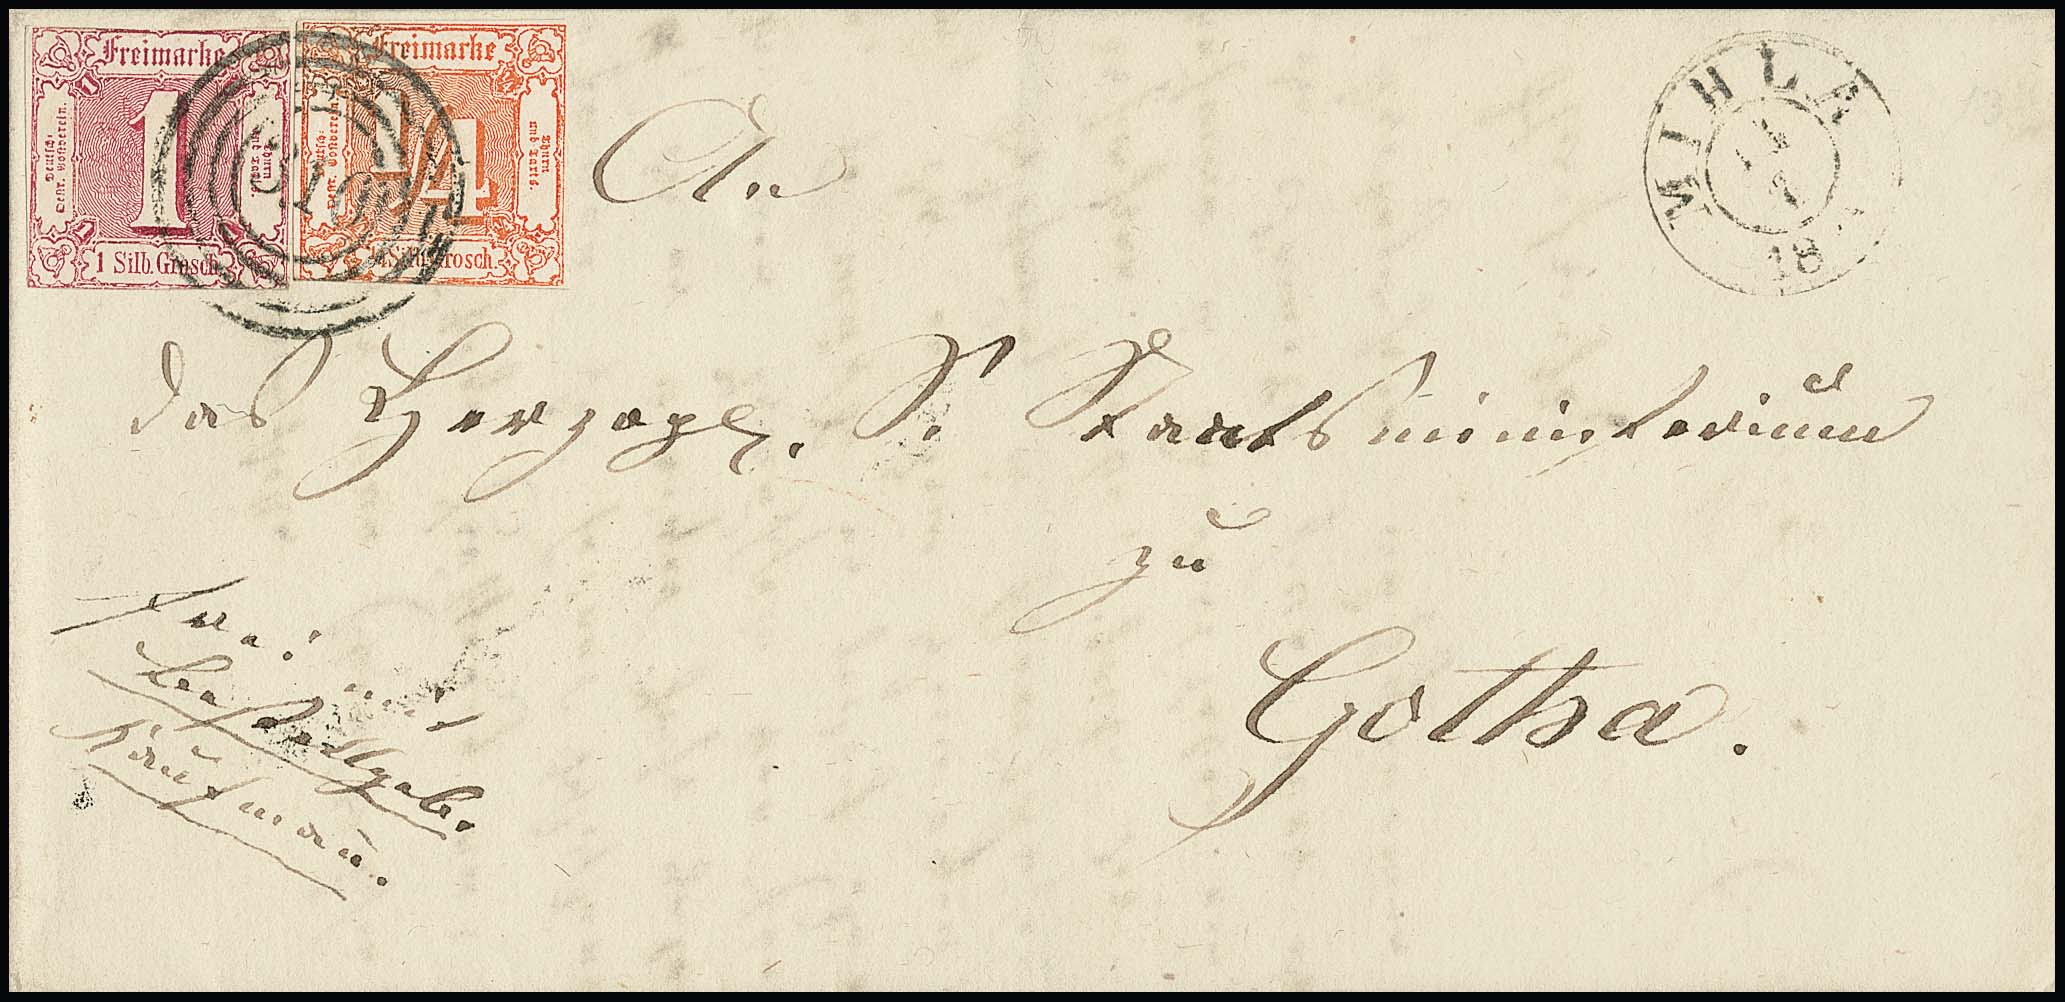 Freimarke
Deutsch. Oestr. Postverein.
Thurn und Taxis.
1
1 Silb. Grosch.
Freimarke
Deutsch. Oestr. Postverein.
Thurn und Taxis.
1/4
1/4 Silb. Grosch.
MIHLA
7
18
An
das Herzogl. S. Staatsministerium
zu
Gotha.
frei
mit
Bestellgeb.
Kaufmann.